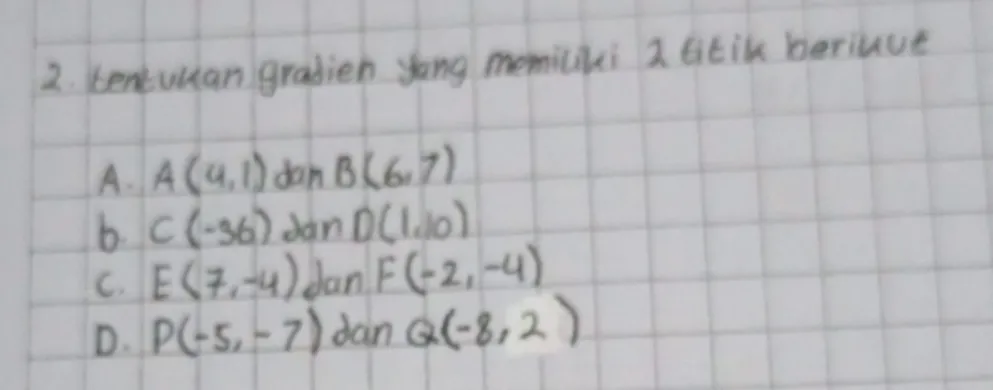 2. tentukan gradien yang memiliki 2 titik berikut
A. A(4,1) dan B(6,7)
b. C(-36) dan D(1,10)
C. E(7,-4) dan F(-2,-4)
D. P(-5,-7) dan Q(-8,2)